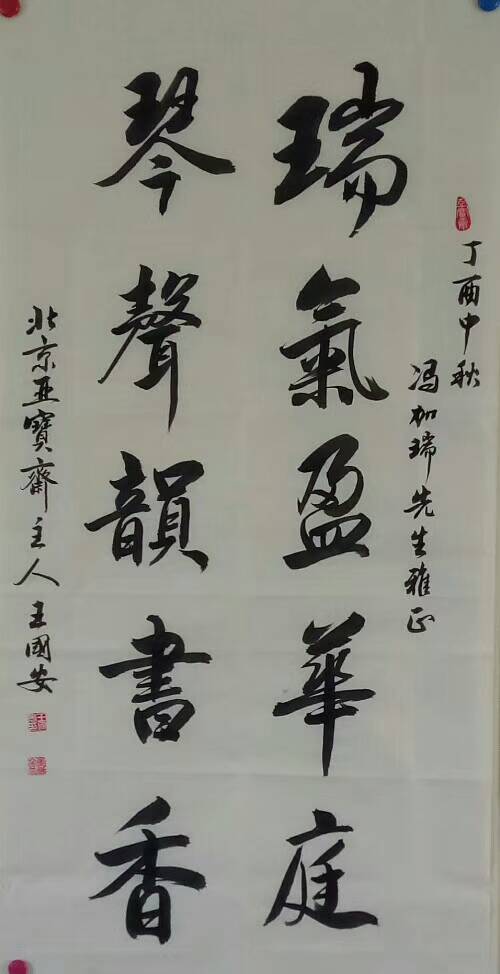 丁酉中秋
冯加瑞先生雅正
瑞氣盈華庭
琴聲韻書香
北京亚寶齋主人王國安